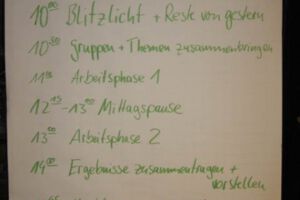 10⁰⁰ Blitzlicht + Reste von gestern
10³⁰ Gruppen + Themen zusammenbringen
Arbeitsphase 1
12¹⁵-13⁰⁰ Mittagspause
13⁰⁰ Arbeitsphase 2
14⁰⁰ Ergebnisse zusammentragen +
vorstellen